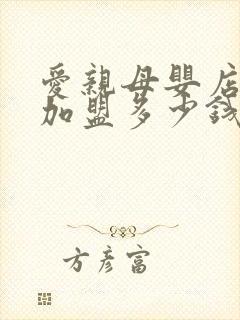 愛親母嬰店
加盟多少錢
方彦富